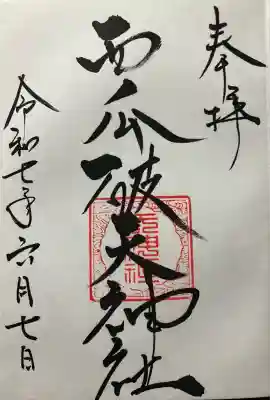 奉拝
西ノ瓜破天神社
令和七年六月七日